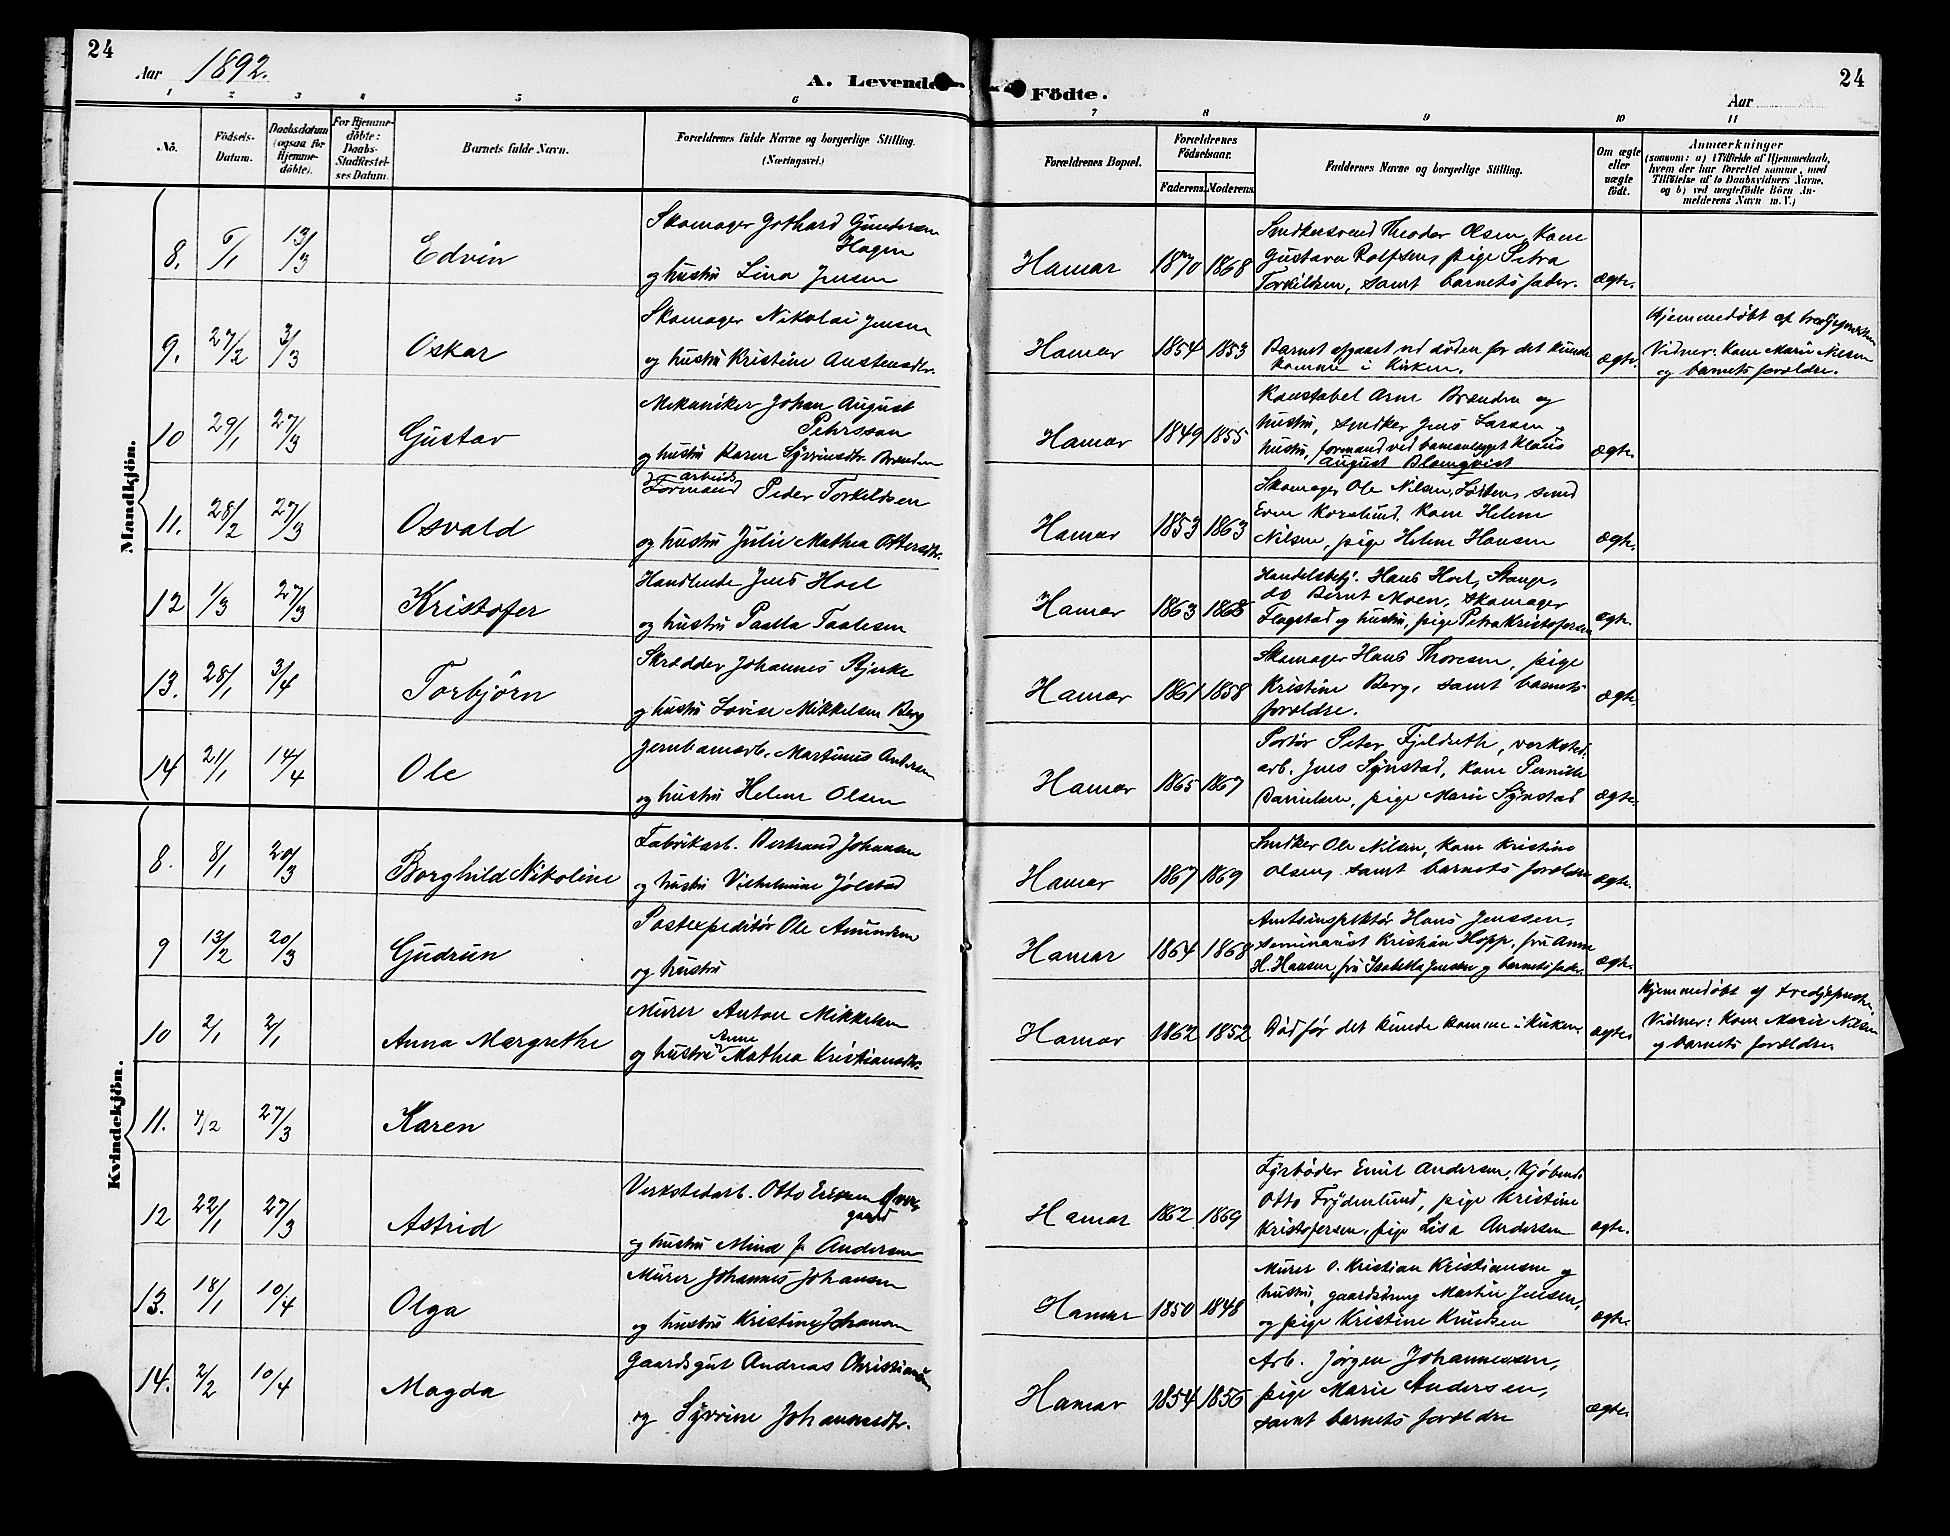 24
Aar 1892.
A. Levende
Födte.
Aar
24
1 2 3 4 5 6 7 8 9 10 11
No.
Födsels-Datum.
Daabsdatum (ogsaa for Hjemme-döbte).
For Hjemme-döbte: Daabs-Stadfæstel-ses Datum.
Barnets fulde Navn.
Forældrenes fulde Navne og borgerlige Stilling.
(Næringsvei.)
Forældrenes Bopæl.
Forældrenes Födselsaar.
Faderens. Moderens.
Faddernes Navne og borgerlige Stilling.
Om ægte eller uægte født.
Anmærkninger
(saasom: a) i Tilfælde af Hjemmedaab,
hvem der har forrettet samme, med
Tilföielse af to Daabsvidners Navne,
og b) ved uegtefödte Börn An-
melderens Navn m. V.)
Mandkjön.
8. 6/1 13/3 Edvin
Skomager Gothard Gundersen
Hagen
og hustru Lina Jensen
Hamar 1870 1868
Snedkersvend Theodor Olsen, kone
Gustava Rolfsen, pige Petra
Torkildsen, samt barnets fader.
ægte.
9. 27/2 3/3 Oskar
Skomager Nikolai Jensen
og hustru Kristine Austensdtr.
Hamar 1854 1853
Barnet afgaaet ved døden før det kunde
komme i kirken.
ægte.
Hjemmedøbt af
Vidner: kone Marie Nilsen
og barnets forældre.
10 29/1 27/3 Gustav
Mekaniker Johan August
Pehrsson
og hustru Karen Syverinsdtr. Brænden
Hamar 1849 1855
Konstabel Arne Brænden og
hustru, snedker Jens Larsen og
hustru, formand ved baneanlægget Klaus
August Blomqvist
ægte.
11. 28/2 27/3 Osvald
arbeids
Formand Peder Torkildsen
og hustru Julie Mathea Ottersdtr.
Hamar 1853 1863
Skomager Ole Nilsen, Løiten, smed
Even Korslund, kone Helene
Nilsen, pige Helene Hansen
ægte.
12 1/3 27/3 Kristofer
Handlende Jens Hoel
og hustru Paulla Paulsen
Hamar 1863 1868
Handelsbetj. Hans Hoel, Stange,
do Bernt Moen, skomager
Flagstad og hustru, pige Petra Kristofersen
ægte.
13. 28/1 3/4 Torbjörn
Skrædder Johannes Bjerke
og hustru Lovise Mikkelsen Berg
Hamar 1861 1858
Skomager Hans Thoresen, pige
Kristine Berg, samt barnets
forældre.
ægte.
14 21/1 14/4 Ole
Jernbanearb. Martinus Andersen
og hustru Helene Olsen
Hamar 1865 1867
Portør Peter Fjeldseth, verksted.
arb. Jens Synstad, kone Pernille
Danielsen, pige Marie Synstad
ægte.
Kvindekjön.
8. 8/1 20/3 Borghild Nikoline
Fabrikarb. Bertrand Johansen
og hustru Vilhelmine Jølstad
Hamar 1867 1869
Snedker Ole Nilsen, kone Kristine
Olsen, samt barnets forældre
ægte.
9 13/2 20/3 Gudrun
Postexpeditör Ole Amundsen
og hustru
Hamar 1864 1868
Amtsinspektør Hans Jenssen,
seminarist Kristian Hopp, fru Anna
H. Hansen, fru Isabella Jensen og barnets fader
ægte.
10 2/1 2/1 Anna Margrethe
Murer Anton Mikkelsen
Anne
og hustru Mathea Kristiansdtr.
Hamar 1862 1852
Død før det kunde komme i kirken.
ægte
Hjemmedøbt af
Vidner: kone Marie Nilsen
og barnets forældre.
11. 7/2 27/3 Karen
12 22/1 27/3 Astrid
Verkstedarb. Otto Ericsen
gaard
og hustru Andersen
Hamar 1862 1869
Fyrbøder Emil Andersen, Kjøbmd.
Otto Frydenlund, pige Kristine
Kristofersen, pige Lisa Andersen
ægte.
13. 18/1 10/4 Olga
Murer Johannes Johansen
og hustru Kristine Johansen
Hamar 1850 1848
Murer O. Kristian Kristiansen og
hustru, gaardsdreng Martin Jensen,
og pige Kristine Knudsen
ægte.
14. 2/2 10/4 Magda
Gaardsgut Andreas Christiansen
og Syverine Johannesdtr.
Hamar 1854 1856
Arb. Jörgen Johannessen,
pige Marie Andersen,
samt barnets forældre
ægte.